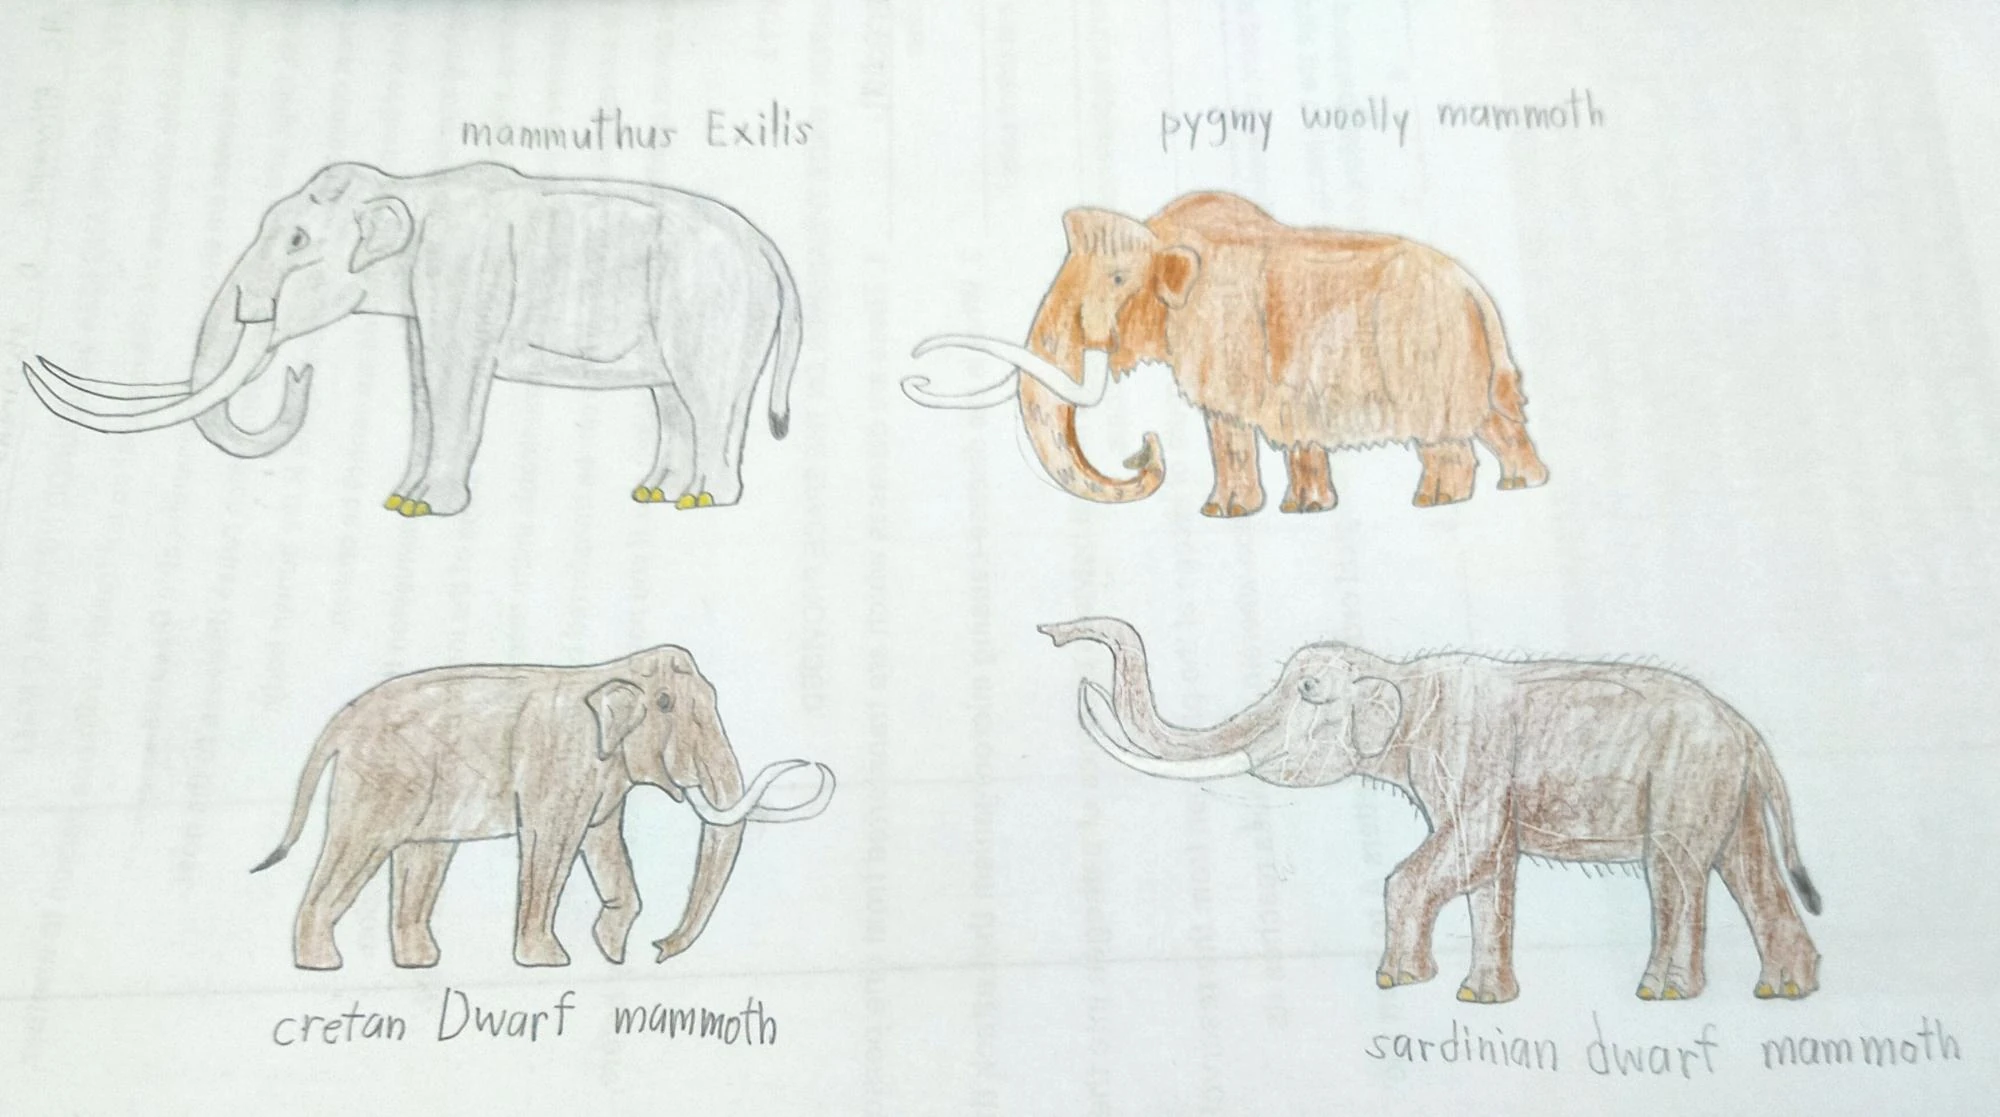 mammuthus Exilis
pygmy woolly mammoth
cretan Dwarf mammoth
sardinian dwarf mammoth